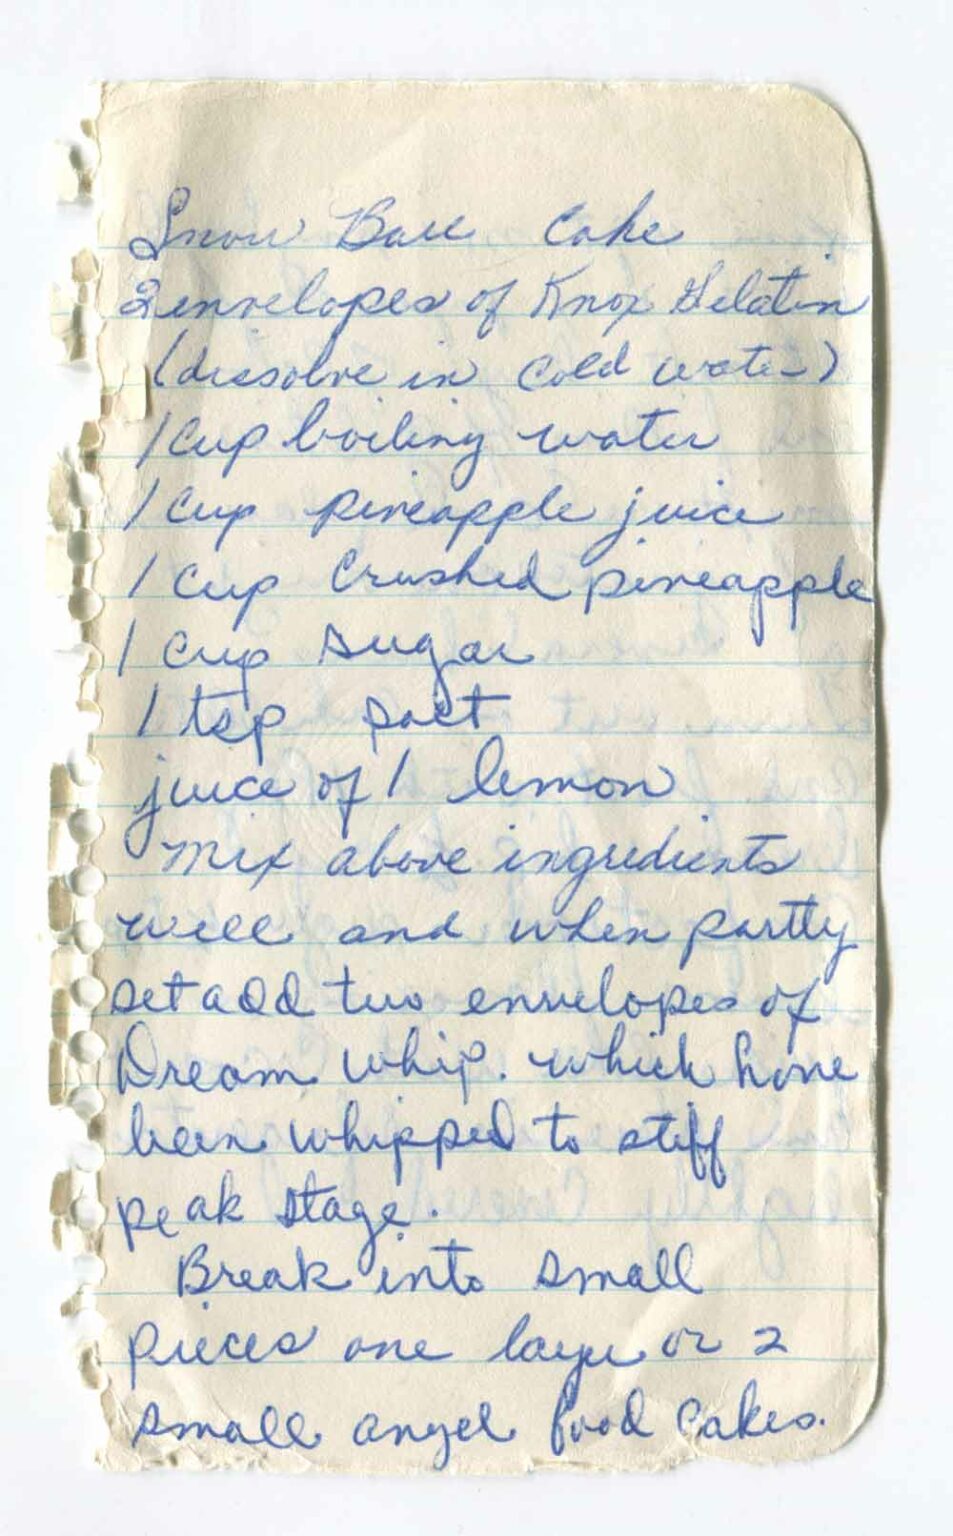 Snow Ball Cake
2 envelopes of Knox Gelatin
(dissolve in cold water)
1 cup boiling water
1 cup pineapple juice
1 cup crushed pineapple
1 cup sugar
1 tsp salt
juice of 1 lemon
Mix above ingredients
well and when partly
set add two envelopes of
Dream Whip. which have
been whipped to stiff
peak stage.
Break into small
pieces one layer or 2
small angel food cakes.